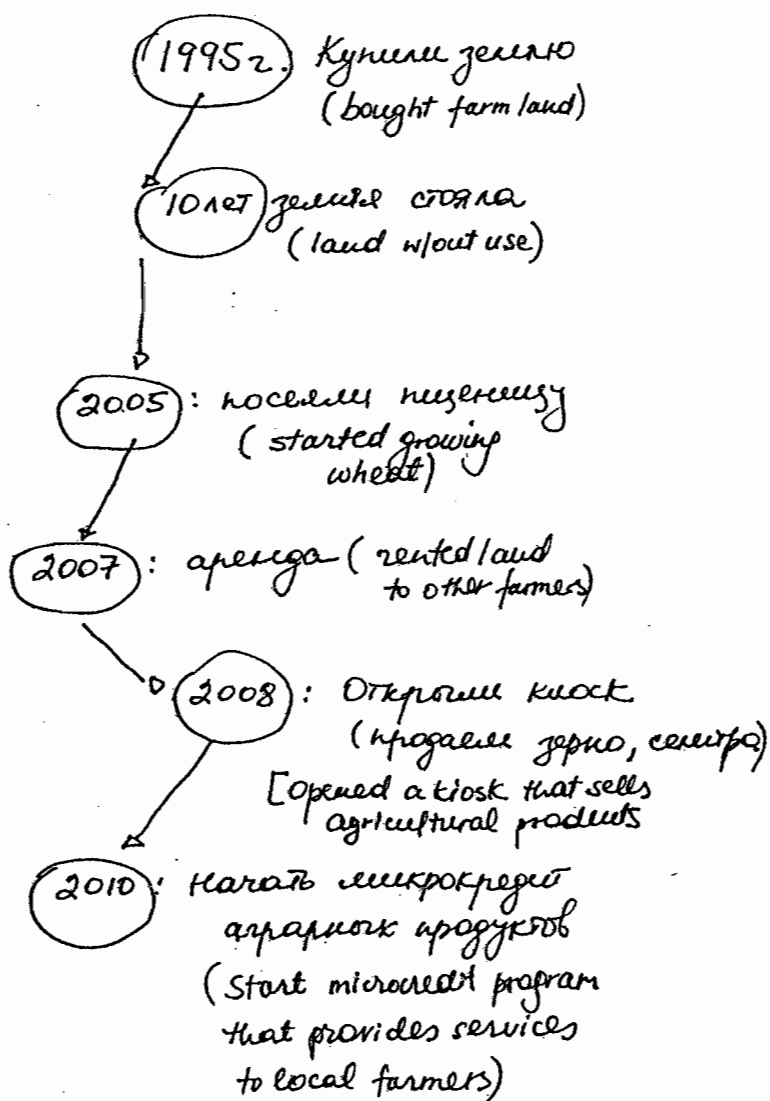 1995г. Купили землю
(bought farm land)
10 лет земля стояла
(land w/out use)
2005: посеяли пшеницу
(started growing
wheat)
2007: аренда (rented land
to other farmers)
2008: Открыли киоск
(продаем зерно, селитра)
[opened a kiosk that sells
agricultural products
2010: Начать микрокредит
аграрных продуктов
(Start microcredit program
that provides services
to local farmers)